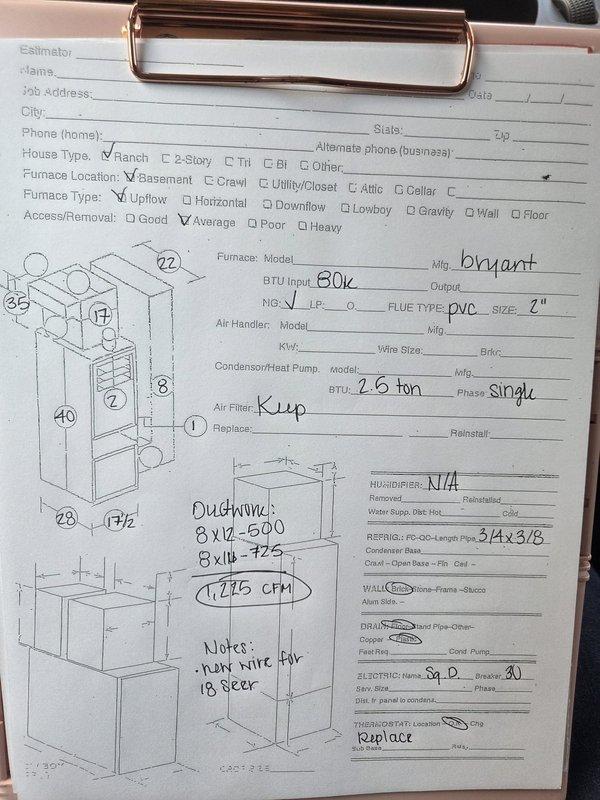 Estimator
Name
Job Address: Date / /
City: State: Zip
Phone (home): Alternate phone (business):
House Type. ✓ Ranch ☐ 2-Story ☐ Tri ☐ Bi ☐ Other:
Furnace Location: ✓ Basement ☐ Crawl ☐ Utility/Closet ☐ Attic ☐ Cellar ☐
Furnace Type: ✓ Upflow ☐ Horizontal ☐ Downflow ☐ Lowboy ☐ Gravity ☐ Wall ☐ Floor
Access/Removal: ☐ Good ✓ Average ☐ Poor ☐ Heavy
Furnace: Model Mfg. bryant
BTU Input 80k Output
NG: ✓ LP: O. FLUE TYPE: pvc SIZE: 2"
Air Handler: Model Mfg.
KW: Wire Size: Brkr:
Condensor/Heat Pump. Model: Mfg.
BTU: 2.5 ton Phase single
Air Filter: Keep
Replace: Reinstall:
22
35
17
2
8
40
1
28 17 1/2
Ductwork:
8x12-500
8x16-725
1,225 CFM
Notes:
• new wire for
18 Seer
HUMIDIFIER: N/A
Removed Reinstalled
Water Supp. Dist: Hot Cold
REFRIG.: FC-QC-Length Pipe 3/4 x 3/8
Condenser Base
Crawl - Open Base - Fin Ceil -
WALL: Brick-Stone-Frame-Stucco
Alum Side. -
DRAIN: Floor-Stand Pipe-Other-
Copper - Plastic
Feet Req. Cond Pump
ELECTRIC: Name Sq.D. Breaker 30
Serv. Size Phase
Dist. fr panel to condens.
THERMOSTAT: Location - O.K. - Chg
Replace
Sub Base